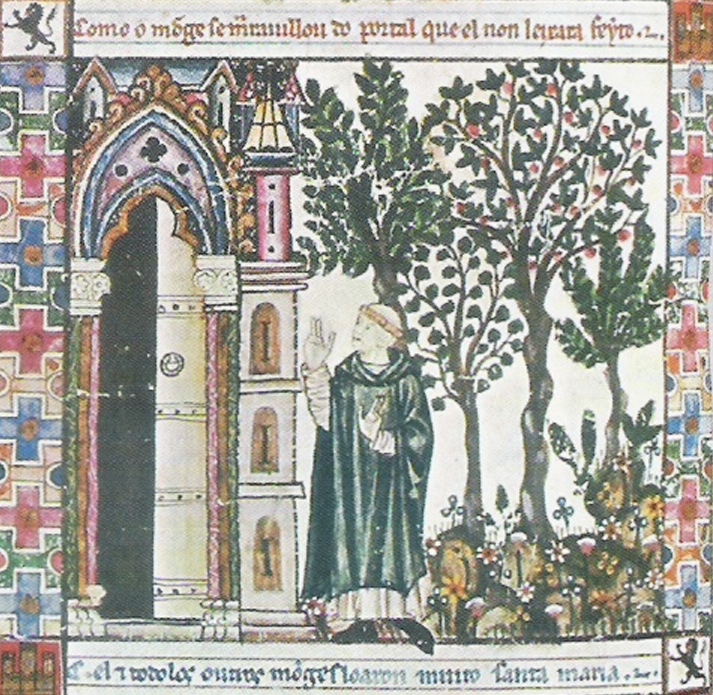 Como o mõge se m̃rauillou do portal que el non leixara feyto
E el ⁊ todolos outros mõges loaron muito santa maria